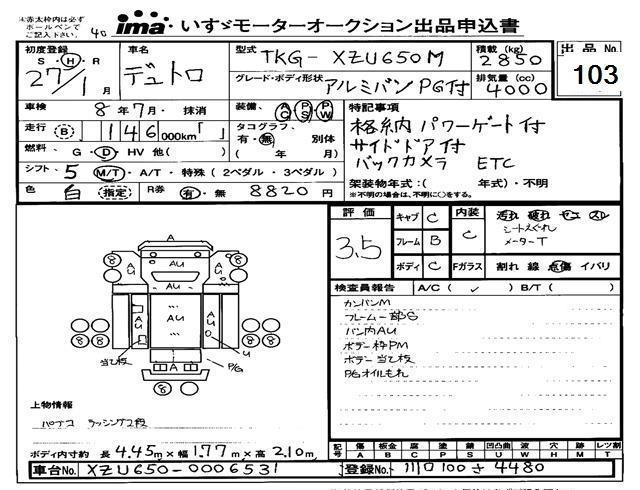 ※赤太枠内は必ず
ボールペンで
ご記入下さい。
40
ima いすゞモーターオークション出品申込書
初度登録 S・H・R 27/1 月
車名 デュトロ
型式 TKG- XZU650M
積載(kg) 2850
出品No. 103
グレード・ボディ形状 アルミバン PG付
排気量(cc) 4000
車検 8年7月・抹消
装備、 AC PS PW
特記事項
走行 B 146 000km「 」
タコグラフ、 有・無 別体
格納 パワーゲート付
サイドドア付
燃料、 G・D・HV 他( )
( 年 月)
バックカメラ ETC
シフト 5 M/T・A/T・特殊(2ペダル・3ペダル)
架装物年式:( 年式)・不明
色 白 指定 R券 有・無 8820円
※不明の場合は、不明に○をする。
評価 3.5
キャブ C
内装 C
汚れ 破れ ヤニ スレ
シートえぐれ
メーターT
フレーム B
ボディ C
Fガラス 割れ 線 点傷 イバリ
検査員報告 A/C( ✓ ) B/T( )
カンバンM
フレーム一部S
バン内AU
ボデー枠PM
ボデー当て板
PGオイルもれ
A
AU
8
8
A
AU
AU
AU
AU
U
当て板
A
P/G
8
8
8
8
8
上物情報
パナコ ラッシング2段
ボディ内寸約 長 4.45m×幅 1.77m×高 2.10m
記号 傷 A 板金 B 腐 C 塗 P 錆 S 凹凸曲 U 波 W 穴 H 跡 M レツ割 T
車台No. XZU650-0006531
登録No. 川口100さ4480